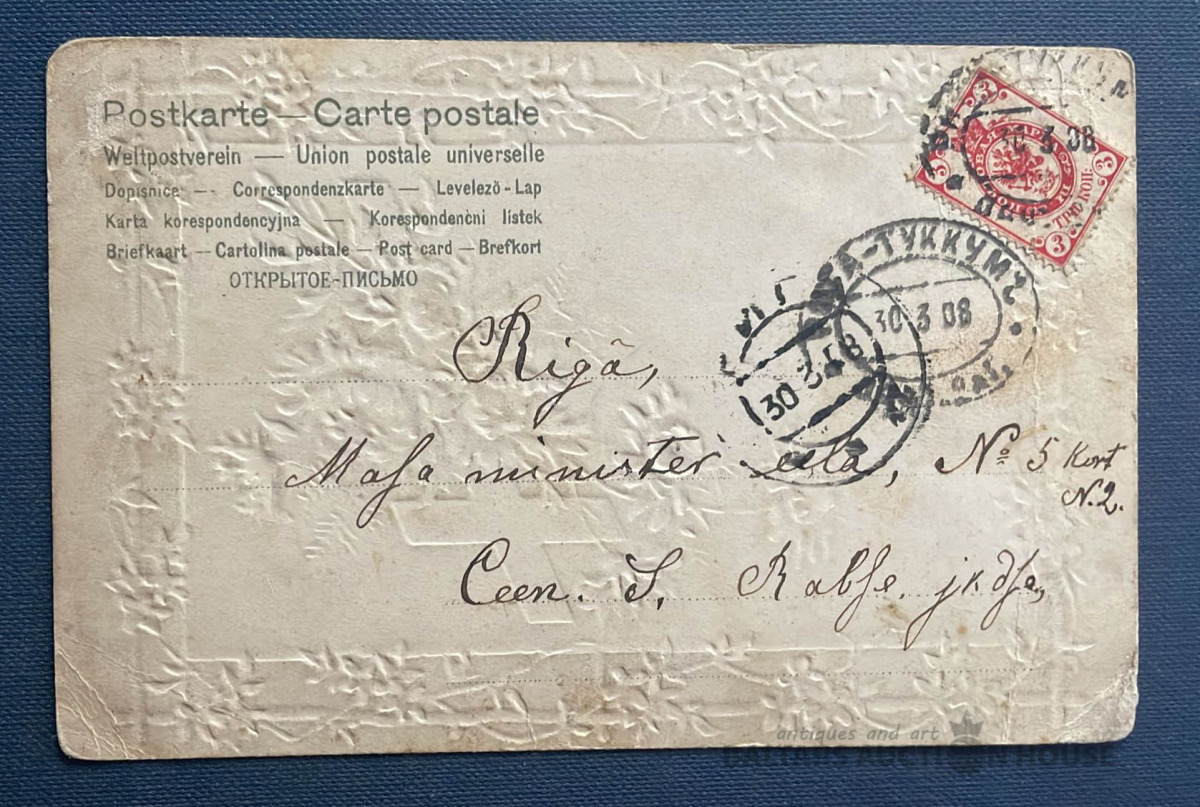 Postkarte — Carte postale
Weltpostverein — Union postale universelle
Dopisnice — Correspondenzkarte — Levelező-Lap
Karta korespondencyjna — Korespondenční lístek
Briefkaart — Cartolina postale — Post card — Brefkort
ОТКРЫТОЕ-ПИСЬМО
30 3 08
3 3 3
ТРИ КОП.
-ТУККУМЪ
30 3 08
30 3 08
Rigā,
Masa minister eela, № 5 Kort
N.2.
Ceen. S. jkdse,
antiques and art
BALTARS AUCTION HOUSE